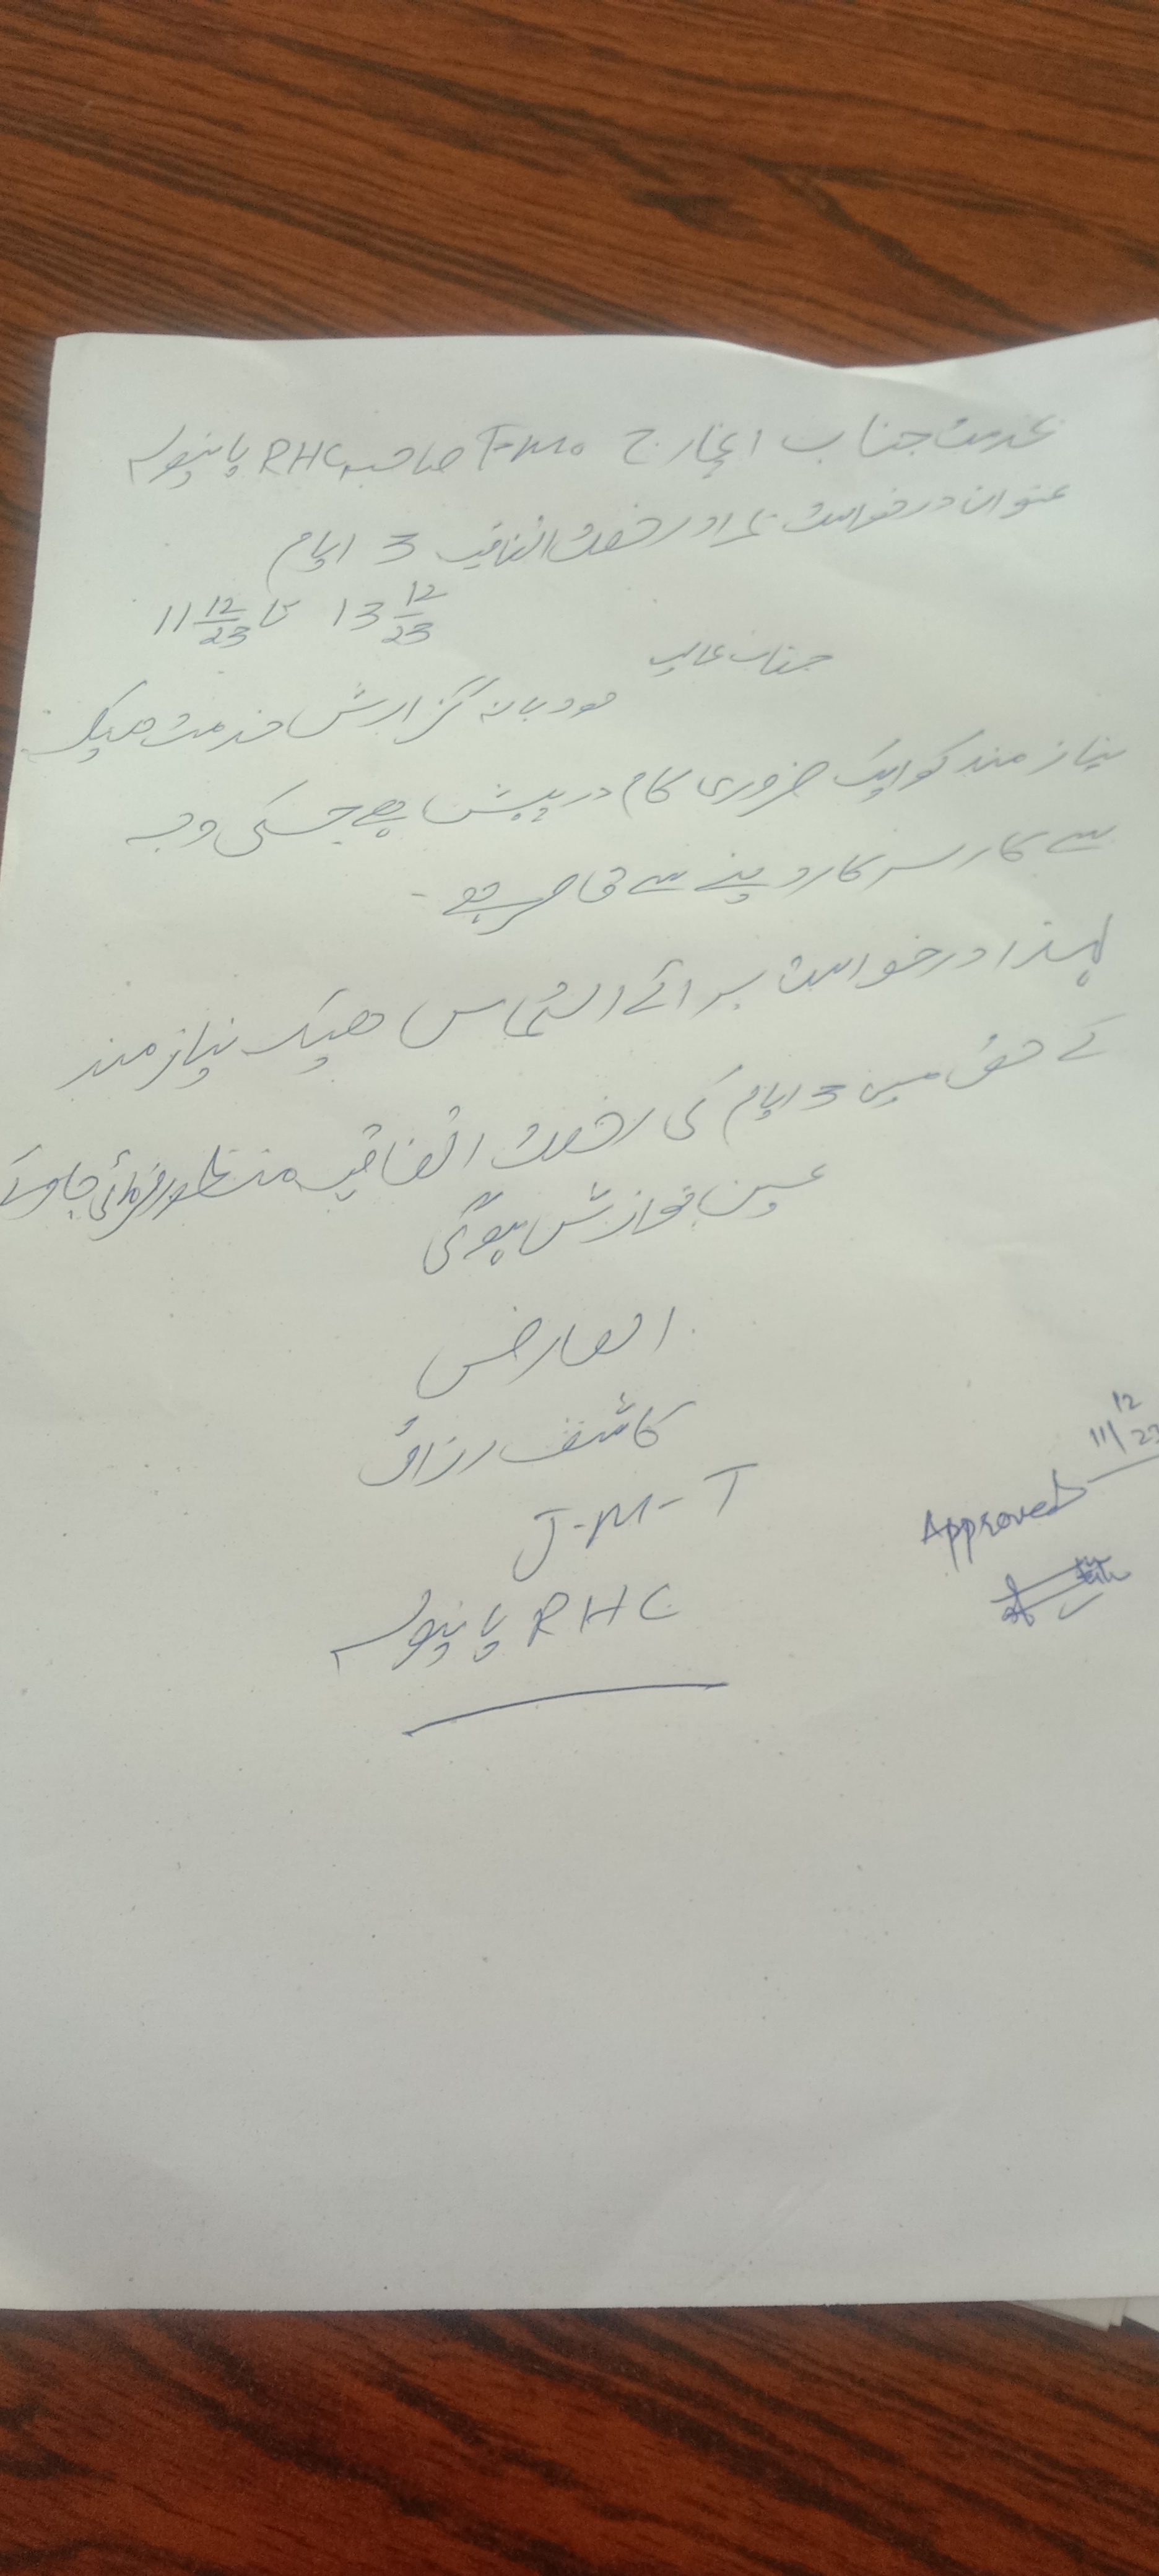 بخدمت جناب انچارج F-M.o صاحبہ RHC پانیولہ
عنوان درخواست بمراد رخصت اتفاقیہ 3 ایام
11 12/23 تا 13 12/23
جناب عالیہ
مودبانہ گزارش خدمت ہیکہ
نیاز مند کو ایک ضروری کام درپیش ہے جسکی وجہ
سے کار سرکار دینے سے قاصر ہے -
لہذا درخواست برائے التماس ھیکہ نیاز مند
کے حق میں 3 ایام کی رخصت اتفاقیہ منظور فرمائی جاوے
عین نوازش ہوگی
العارض
کاشف رزاق
J-M-T
RHC پانیولہ
Approved
11/12 23